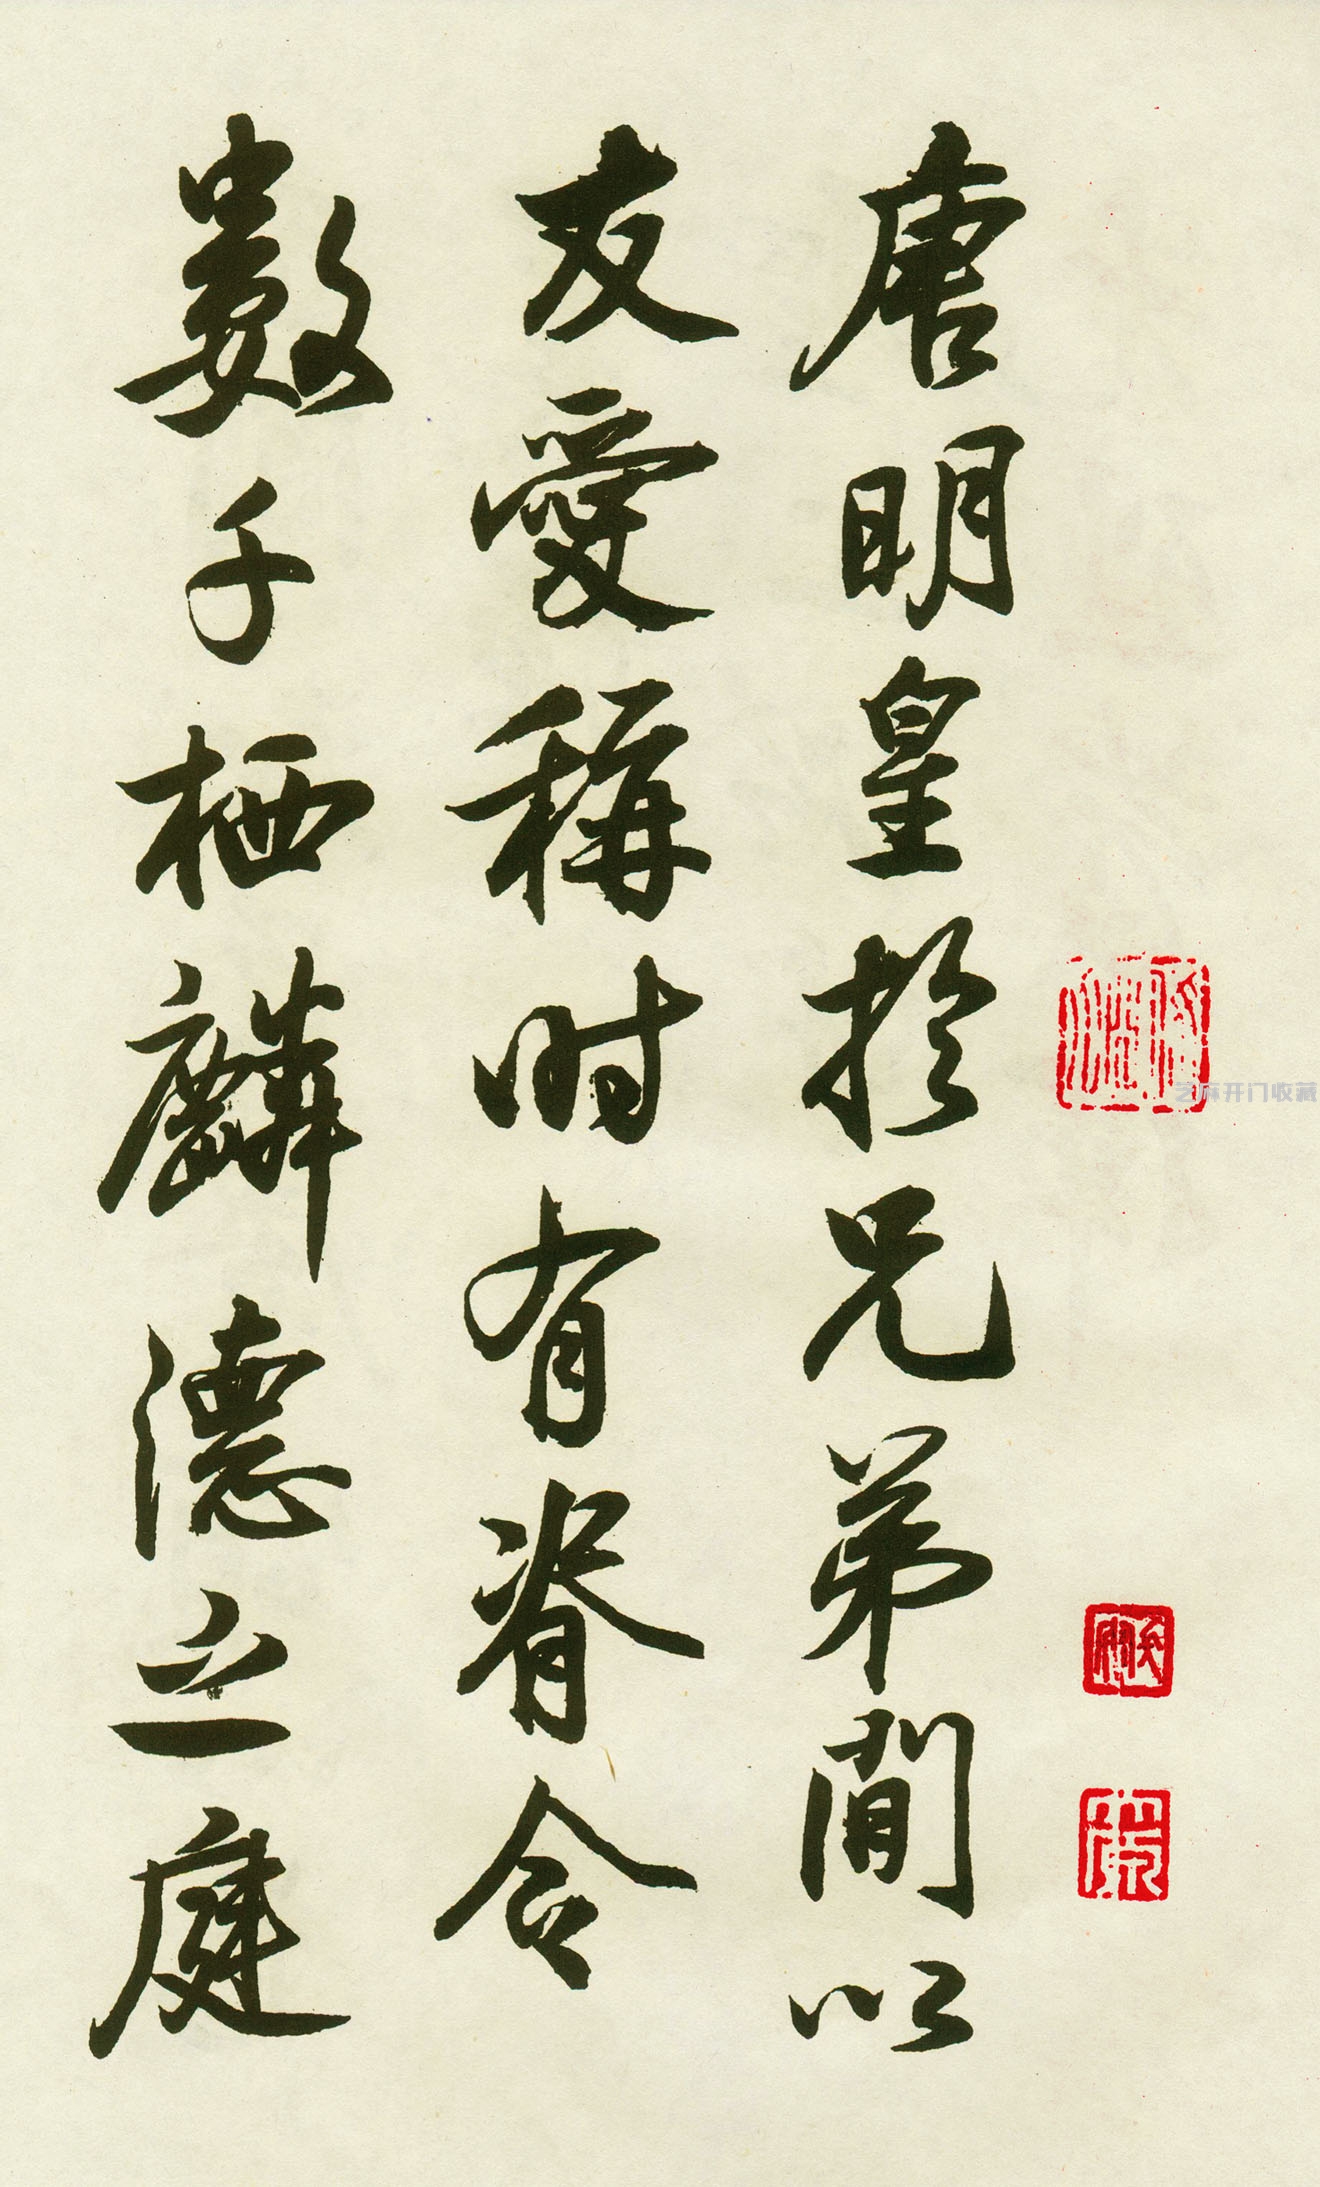 唐明皇於兄弟間以
友愛稱時有脊令
數千栖麟德之庭
芝麻开门收藏